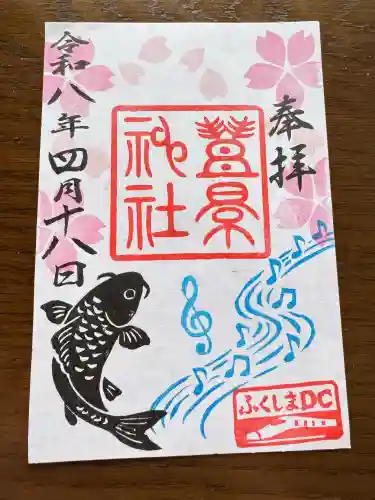 奉拝
蠶養神社
令和八年四月十八日
ふくしまDC